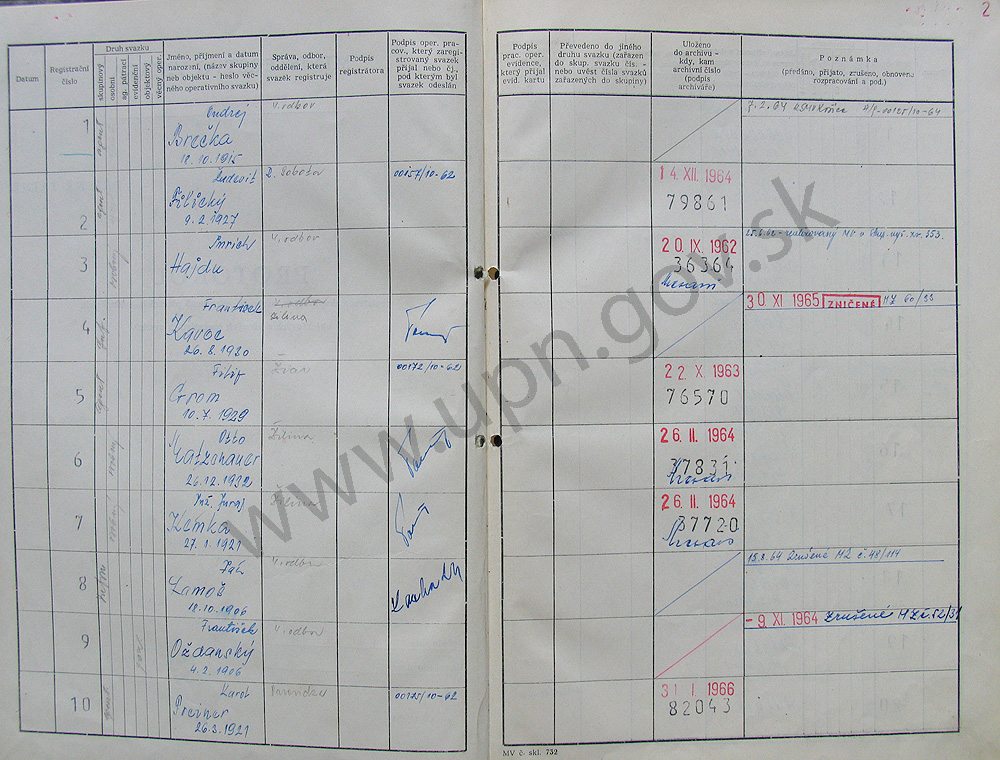 2
Datum
Registrační číslo
Druh svazku
skupinový
osobní
ag. pátrací
evidenční
objektový
věcný oper.
Jméno, příjmení a datum
narození, (název skupiny
neb objektu - heslo věc-
ného operativního svazku)
Správa, odbor,
oddělení, která
svazek registruje
Podpis
registrátora
Podpis oper. pra-
cov., který zaregi-
stroval svazek
přijal nebo čj.,
pod kterým byl
svazek odeslán
Podpis
prac. oper.
evidence,
který přijal
evid. kartu
Převedeno do jiného
druhu svazku (zařazen
do skup. svazku čís. -
nebo uvést čísla svazků
zařazených do skupiny)
Uloženo
do archivu -
kdy, kam
archivní číslo
(podpis
archiváře)
Poznámka
(předáno, přijato, zrušeno, obnoven.
rozpracování a pod.)
1 agent Ondrej V. odbor
Brečka
18. 10. 1915
7. 2. 64
2 agent Ľudovít R. Sobotov 00157/10-62 14. XII. 1964
79861
9. 2. 1927
3 V. odbor 20. IX. 1962
Hajdu 36364
4 František V. odbor 30. XI 1965 ZNIČENÉ MZ 60/33
Žilina
Kavoc
26. 8. 1920
5 agent Filip 00172/10-62 22. X. 1963
Grom 76570
10. 7. 1929
6 Otto Žilina 26. II. 1964
37831
26. 12. 1932
7 Inž. Juraj Žilina 26. II. 1964
Klimka 37720
27. 1. 1921
8 V. odbor 15. 8. 64 Zrušené MZ č. 48/114
Lamoš
18. 10. 1906
9 František V. odbor - 9. XI. 1964 Zrušené MZ č. 52/31
Oždanský
4. 2. 1906
10 agent Karol 00175/10-62 31. I. 1966
Preiner 82043
26. 3. 1921
MV č. skl. 732
www.upn.gov.sk